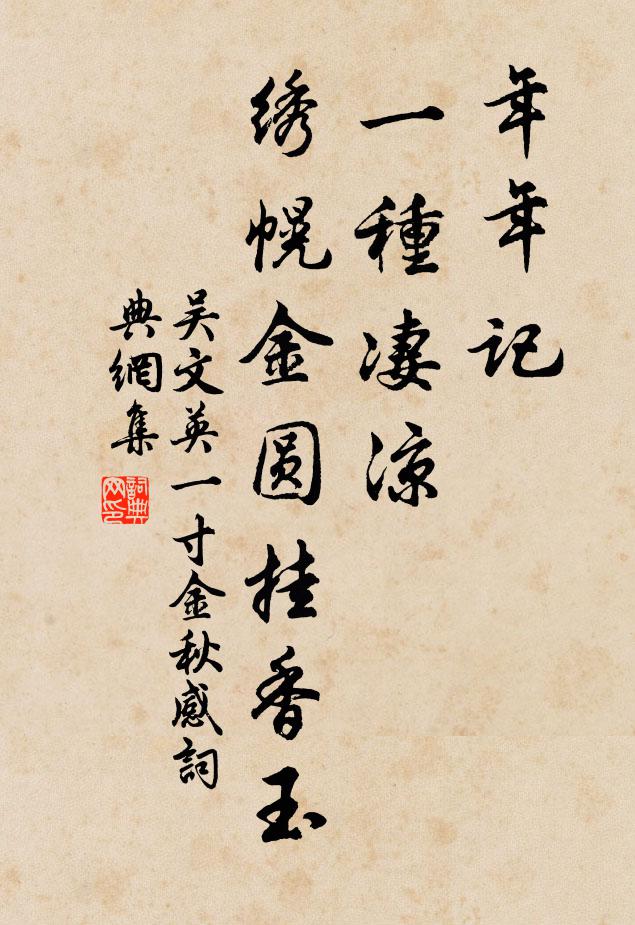 年年记
一種凄涼
绣幌金圆挂香玉
吴文英一寸金秋感詞
典網集
詞典网印